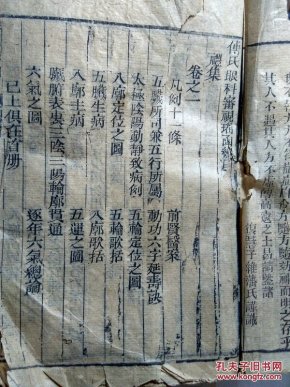 復慧子維藩氏謹識
傅氏眼科審視瑤函
禮集
卷之一
凡例十一條　前賢醫案
五臟所司兼五行所屬　動功六字延壽訣
太極陰陽動靜致病例
八廓定位之圖　五輪定位之圖
五臟主病　五輪歌括
八廓主病　八廓歌括
臟腑表裏三陰三陽輪廓貫通　五運之圖
六氣之圖　逐年六氣總論
已上俱在首冊
孔夫子旧书网